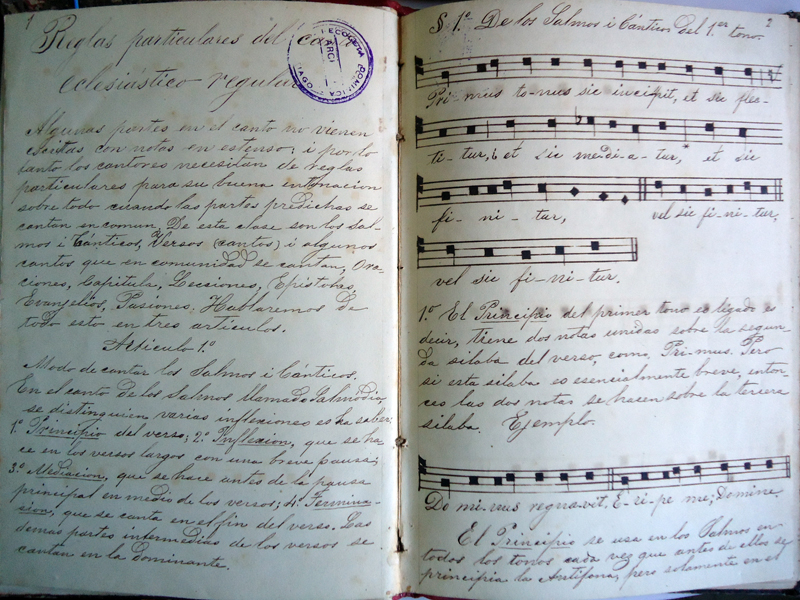 1
Reglas particulares del canto
eclesiástico regular
RECOLETA DOMINICA
ARCHI
Algunas partes en el canto no vienen
escitas con notas en estenso; i por lo
tanto los cantores necesitan de reglas
particulares para su buena entonacion
sobre todo cuando las partes predichas se
cantan en comun. De esta clase son los Sal-
mos i Cánticos, Versos (cantos) i algunos
cantos que en comunidad se cantan, Ora-
ciones, Capitula, Lecciones, Epístolas,
Evangelios, Pasiones. Hablaremos de
todo esto en tres artículos.
Artículo 1.º
Modo de cantar los Salmos i Cánticos.
En el canto de los Salmos llamado Salmodia,
se distinguien varias inflexiones es ha saber:
1.º Principio del verso; 2.º Inflexion, que se ha-
ce en los versos largos con una breve pausa;
3.º Mediacion, que se hace antes de la pausa
principal en medio de los versos; 4.º Termina-
cion, que se canta en el fin del verso. Las
demas partes intermedias de los versos se
cantan en la dominante.
2
§ 1.º De los Salmos i Cánticos del 1.er tono.
Pri-mus to-nus sic incipit, et sic flec-
ti-tur, ¿ et sic medi-a-tur, * et sic
fi-ni-tur, vel sic fi-ni-tur,
vel sic fi-ni-tur.
1.º El Principio del primer tono es ligado es
decir, tiene dos notas unidas sobre la segun-
da silaba del verso, como Pri-mus. Pero
si esta silaba es esencialmente breve, enton-
ces las dos notas se hacen sobre la tercera
silaba. Ejemplo.
Do mi-nus regnavit, E-ri-pe me, Domine
El Principio se usa en los Salmos en
todos los tonos cada vez que antes de ellos se
principia la Antífona, pero solamente en el